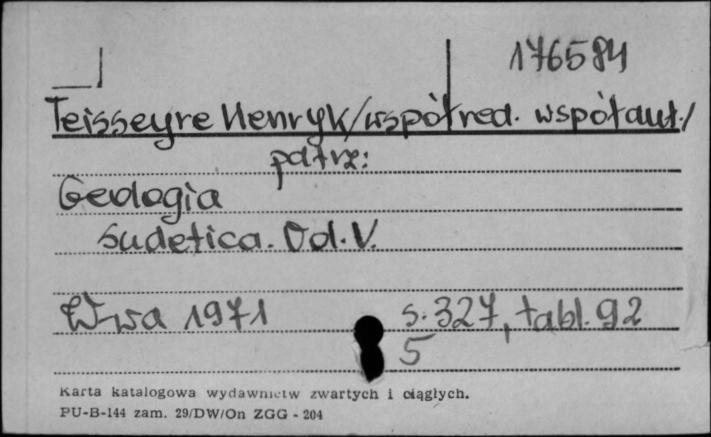 176584
Teisseyre Henryk/współred. współaut./
patrz:
Geologia
Sudetica. Vol. V.
W-wa 1971 s. 327, tabl. 92
5
Karta katalogowa wydawnictw zwartych i ciągłych.
PU-B-144 zam. 29/DW/On ZGG - 204